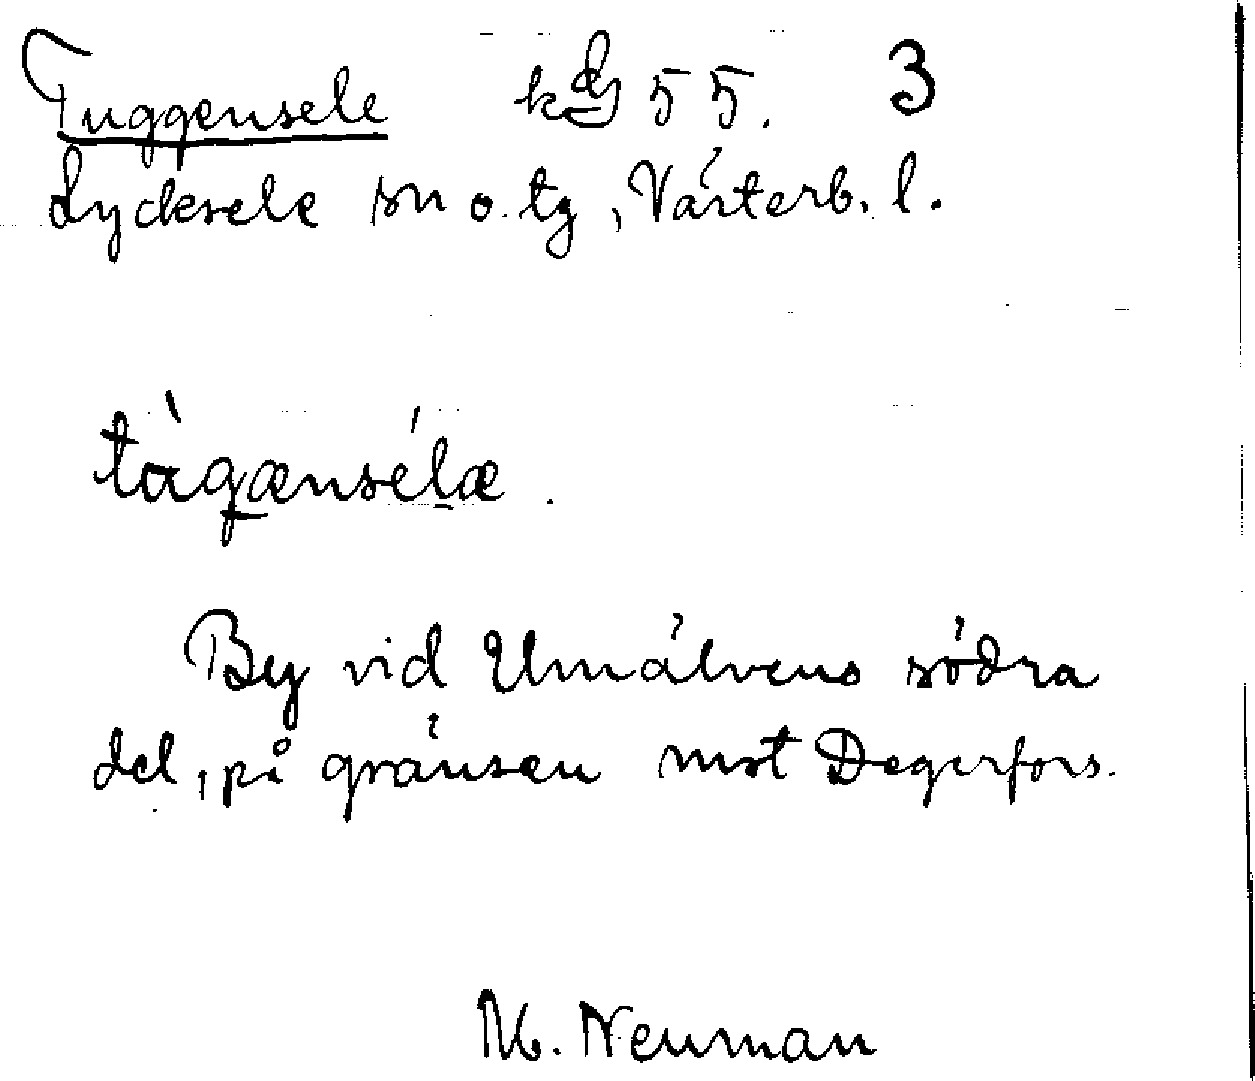 Tuggensele kbl 55. 3
Lycksele sn o. tg, Västerb. l.
tàgænsélæ.
By vid Umälvens södra
del, på gränsen mot Degerfors.
M. Neuman